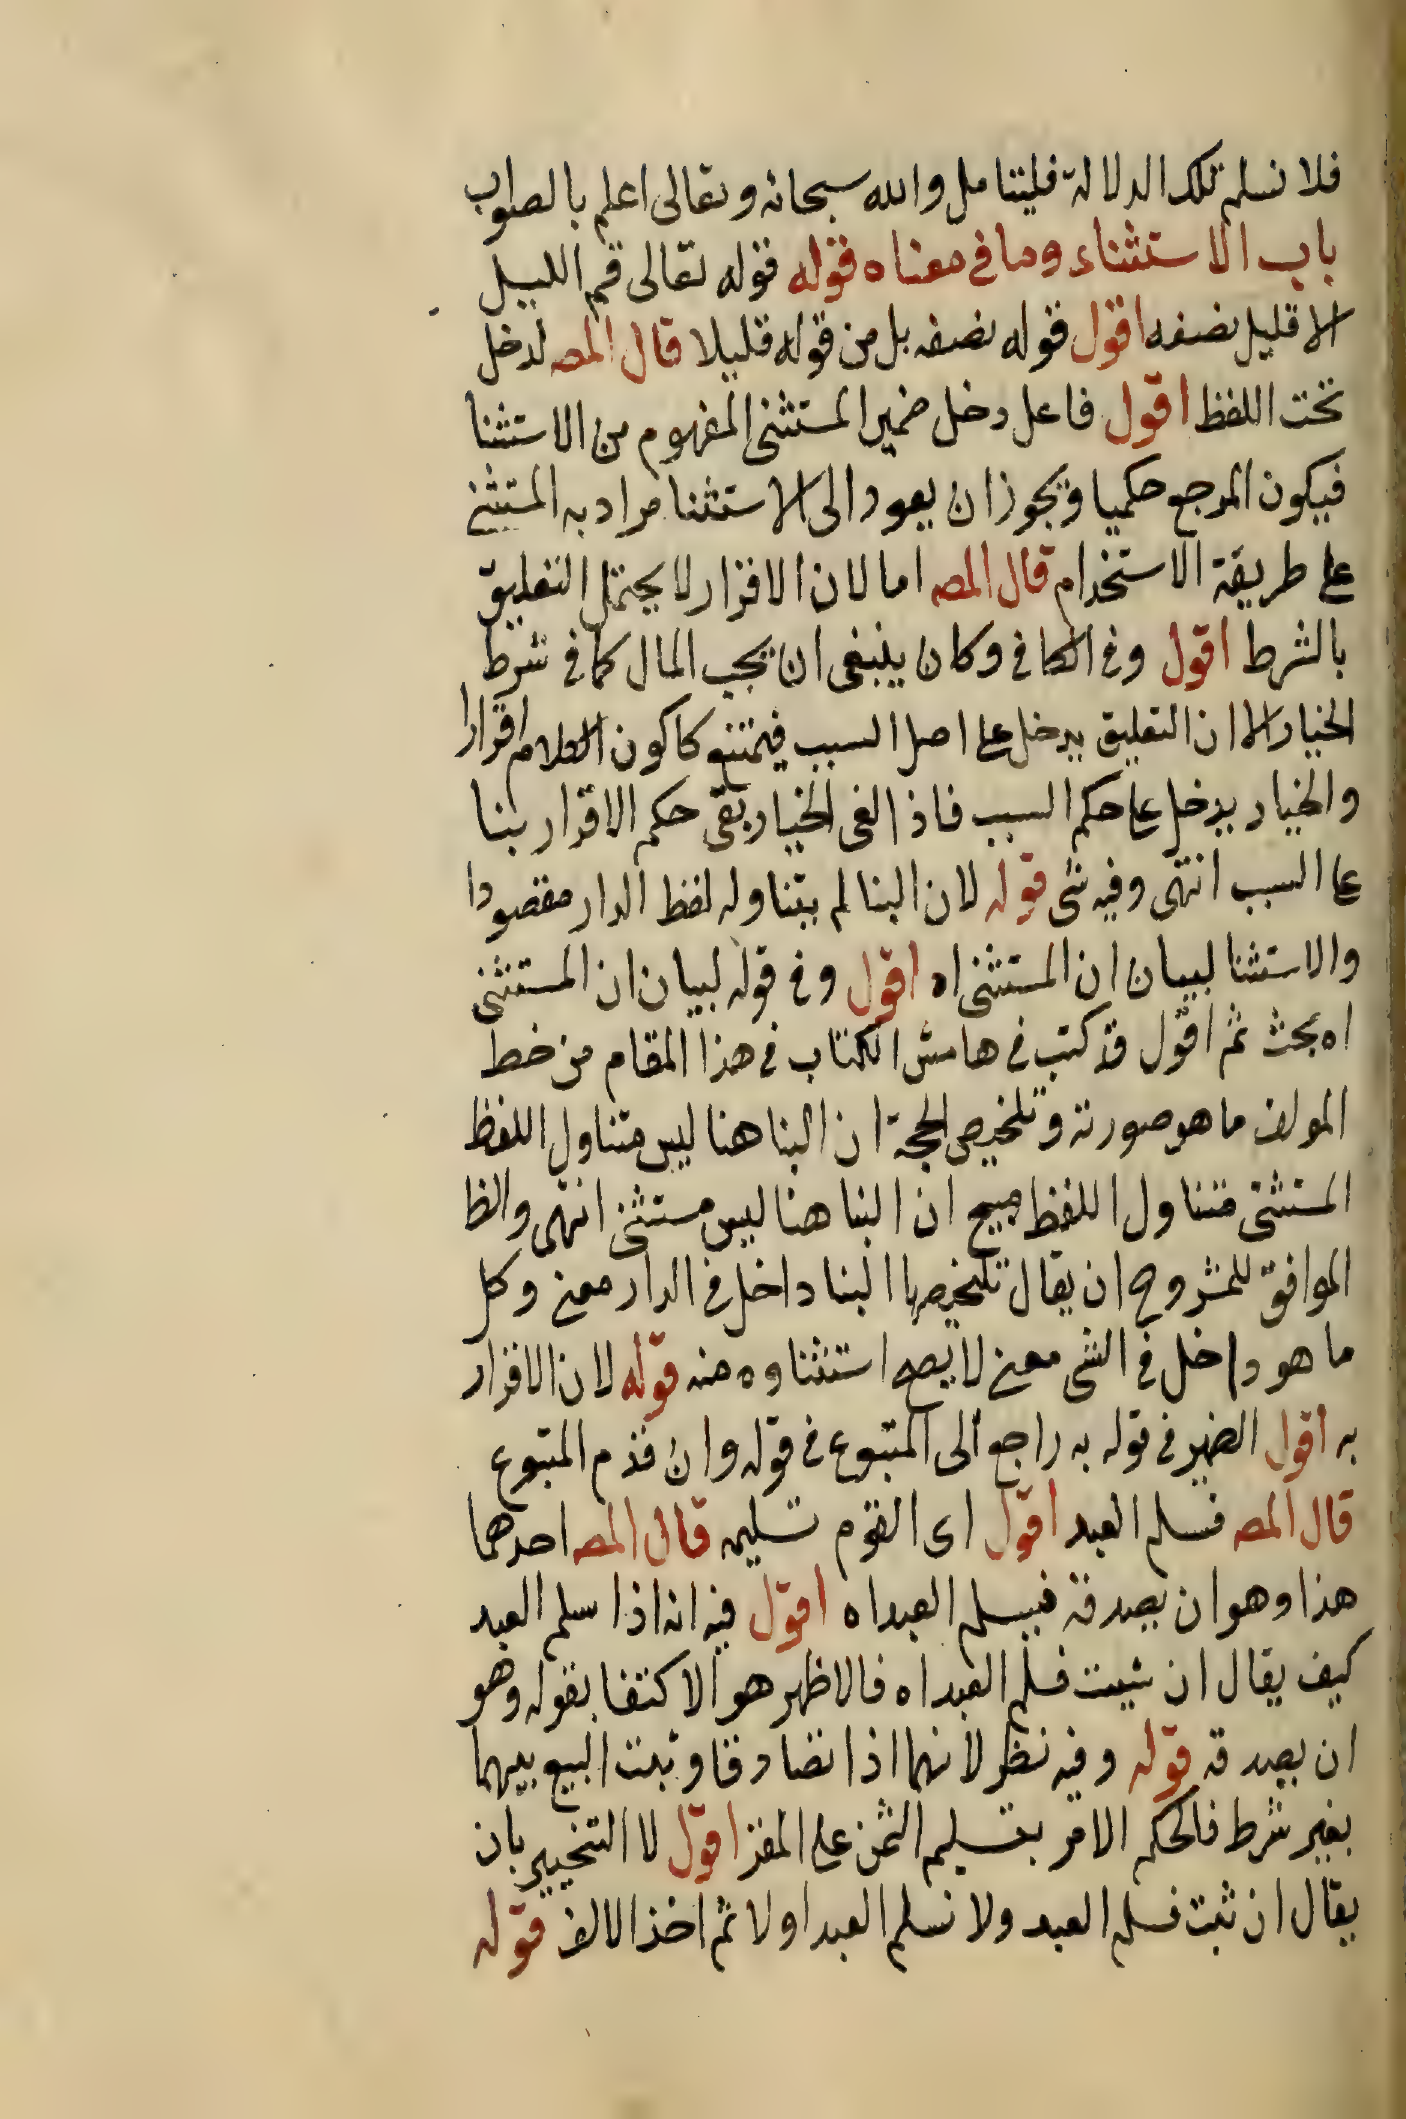 فلا نسلم تلك الدلالة فليتامل والله سبحانه وتعالى اعلم بالصواب
باب الاستثناء وما في معناه قوله قوله تعالى قم الليل
الا قليل نصفه اقول قوله نصفه بل من قوله قليلا قال المص لدخل
تحت اللفظ اقول فاعل دخل ضمير المستثنى المفهوم من الاستثنا
فيكون المرجع حكميا ويجوز ان يعود الى الاستثنا مراد به المستثنى
على طريقة الاستخدام قال المص اما لان الاقرار لا يحتمل التعليق
بالشرط اقول وفي الكافي وكان ينبغي ان يجب المال كما في شرط
الخيار الا ان التعليق يدخل على اصل السبب فيمتنع كاكون الكلام اقرارا
والخيار يدخل على حكم السبب فاذا الغى الخيار بقى حكم الاقرار بنا
على السبب انتهى وفيه شى قوله لان البنا لم يتناوله لفظ الدار مقصودا
والاستثنا لبيان ان المستثنى اه اقول وفي قوله لبيان ان المستثنى
اه بحث ثم اقول قد كتب في هامش الكتاب في هذا المقام من خط
المولف ما هو صورته وتلخيص الحجة ان البنا هنا ليس متناول اللفظ
المستثنى متناول اللفظ ان البنا هنا ليس مستثنى انتهى والظا
الموافق للمشروح ان يقال تلخيصها البنا داخل في الدار معنى وكل
ما هو داخل في الشى معنى لا يصح استثناوه منه قوله لان الاقرار
به اقول الضمير في قوله به راجع الى المتبوع في قوله وان قدم المتبوع
قال المص فسلم العبد اقول اى القوم تسليمه قال المص احدهما
هذا وهو ان يصدقه فيسلم العبد اه اقول فيه انه اذا سلم العبد
كيف يقال ان شيت فسلم العبد اه فالاظهر هو الاكتفا بقوله وهو
ان يصدقه قوله وفيه نظر لانهما اذا تصادقا وثبت البيع بينهما
بغير شرط فالحكم الامر بتسليم الثمن على المقر اقول لا التخيير بان
يقال ان ثبت فسلم العبد ولا نسلم العبد اولا ثم اخذ الالف قوله